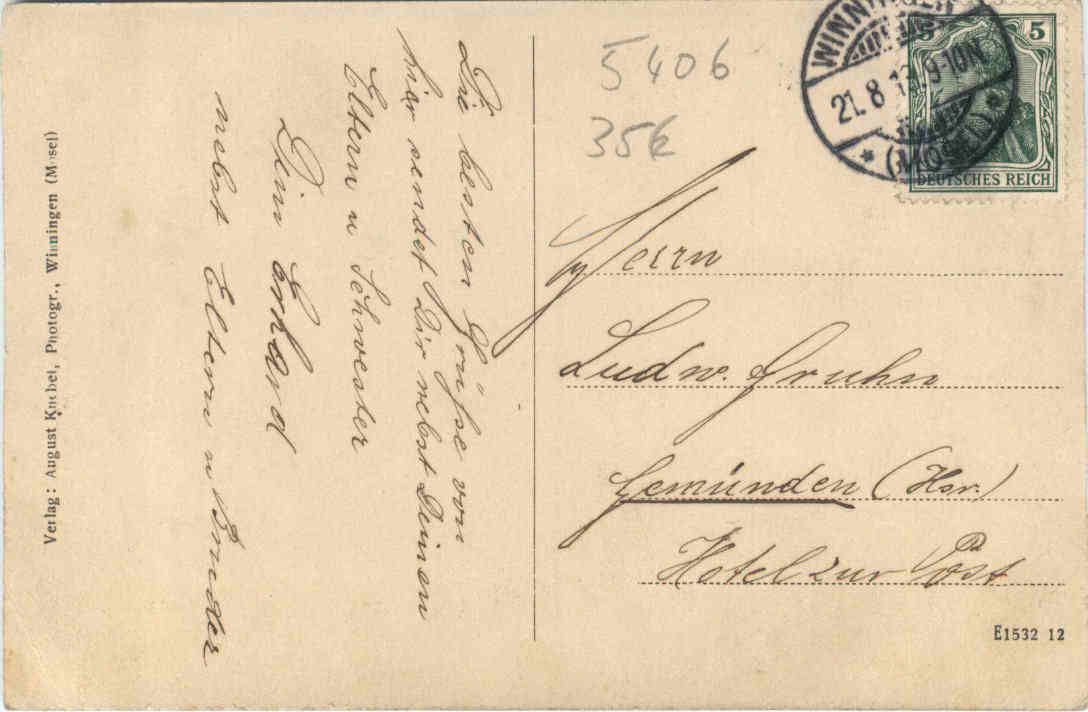 Die besten Grüße von
hier sendet Dir nebst Deinen
Eltern u Schwester
Dein Erhard
nebst Eltern u Bruder
5406
35€
WINNINGEN
21.8.13. 9-10N
* (MOSEL) *
5 5
DEUTSCHES REICH
Herrn
Ludw. Gruhn
Gemünden (Hsr.)
Hotel zur Post
E1532 12
Verlag: August Knebel, Photogr., Winningen (Mosel)